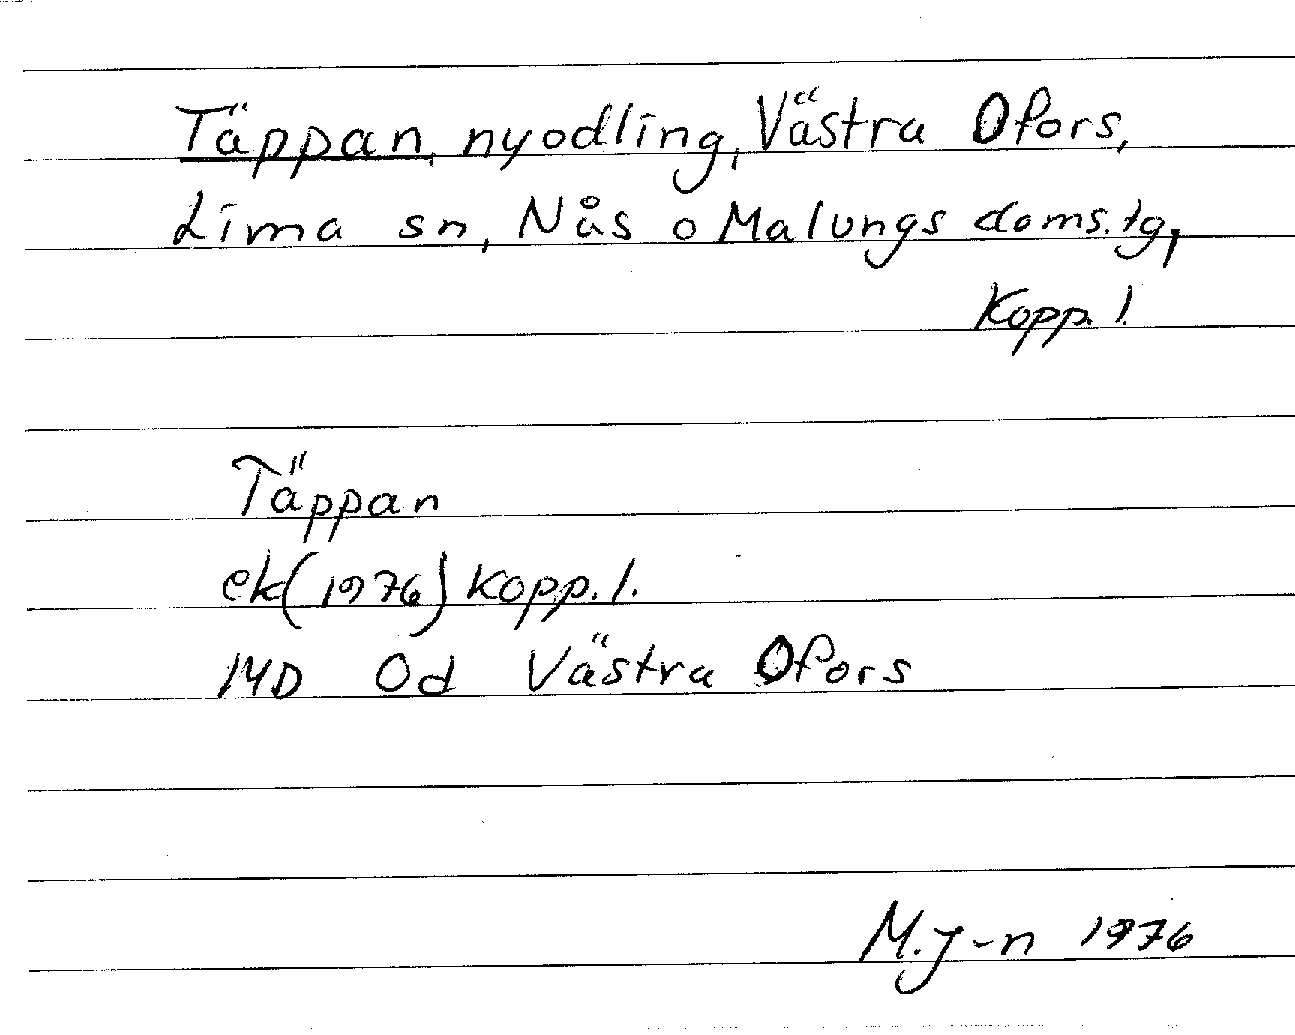 Täppan, nyodling, Västra Ofors,
Lima sn, Nås o Malungs doms.tg,
Kopp. l.
Täppan
ek(1976) Kopp. l.
14D Od Västra Ofors
M.J-n 1976